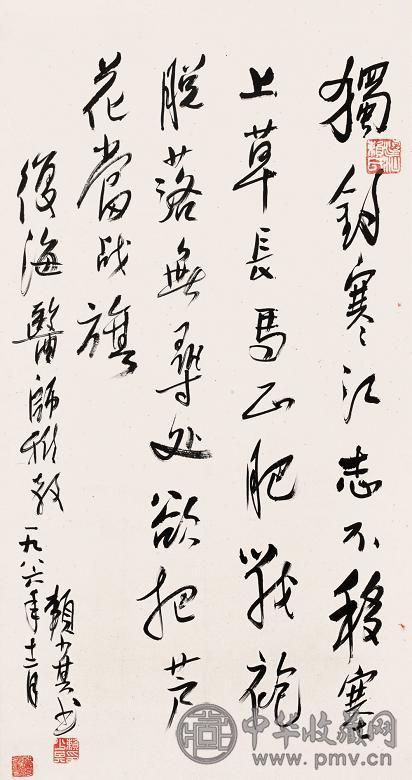 獨釣寒江志不移塞
上草長馬正肥戰袍
脱落無尋处欲把芦
花當战旗
復海醫師雅教
一九八六年十二月
賴少其书
中华收藏网
www.pmv.cn